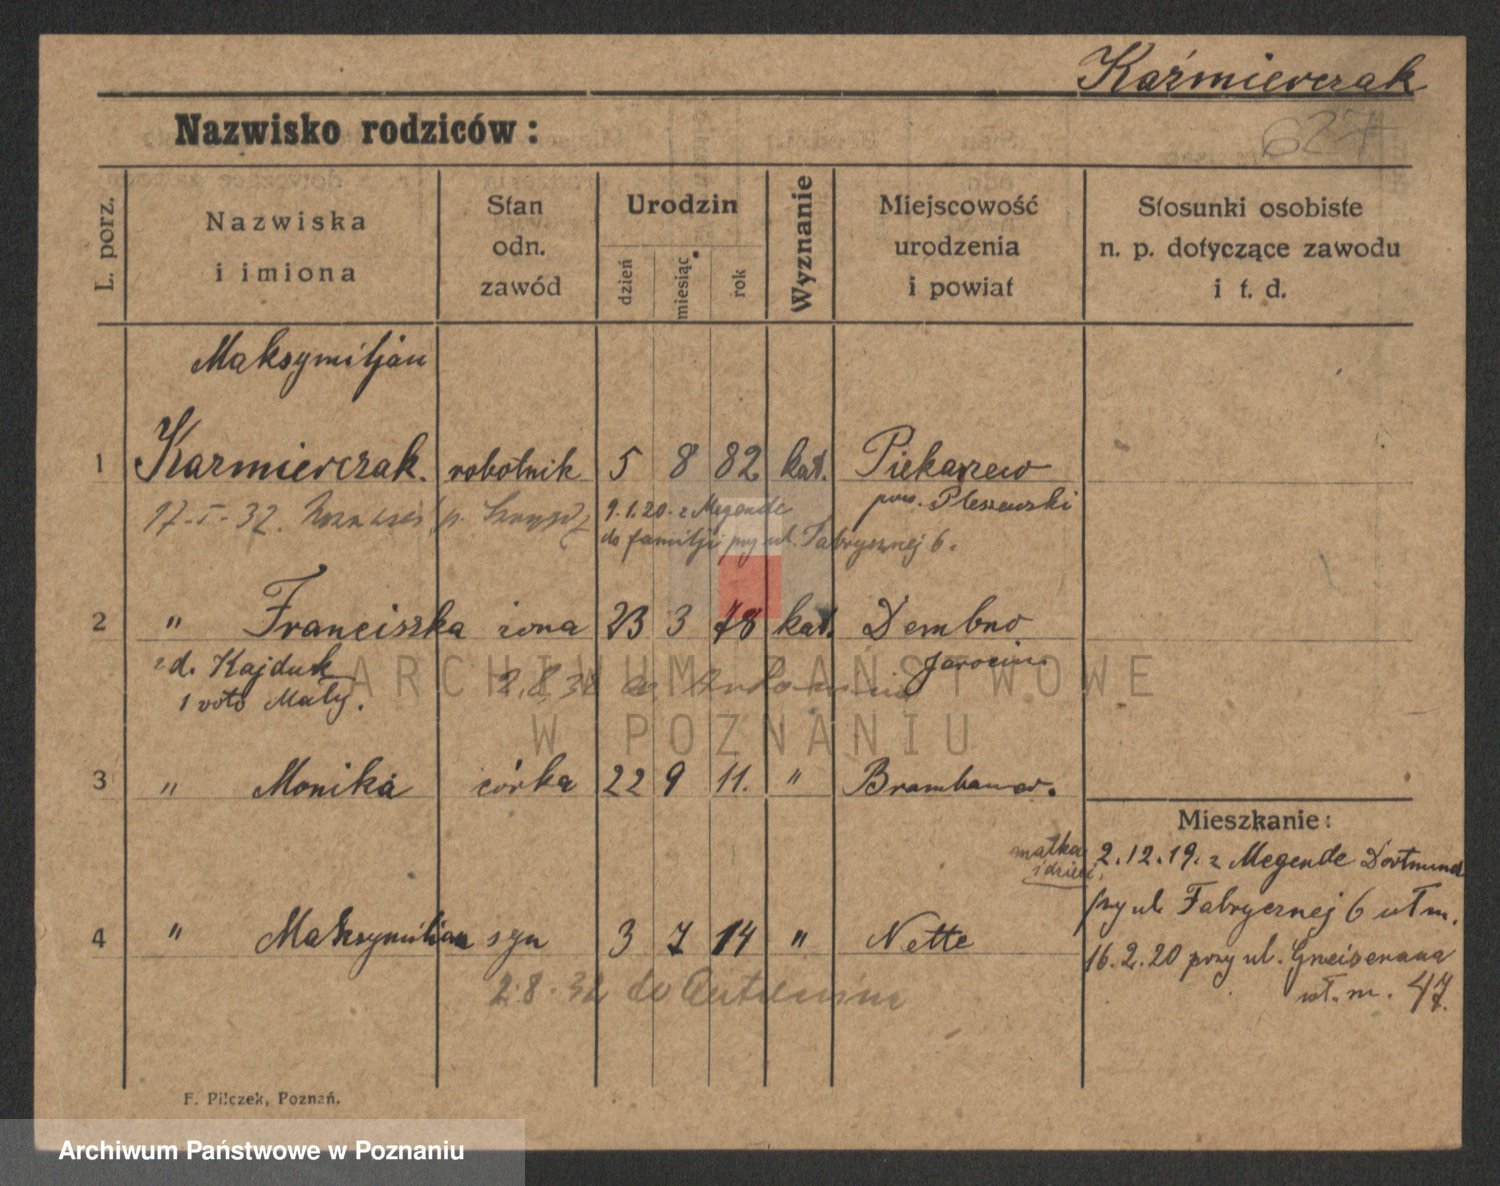 Kaźmierczak
627
Nazwisko rodziców:
L. porz.
Nazwiska
i imiona
Stan
odn.
zawód
Urodzin
dzień
miesiąc
rok
Wyznanie
Miejscowość
urodzenia
i powiat
Stosunki osobiste
n. p. dotyczące zawodu
i t. d.
Maksymiljan
1 Kazmierczak. robotnik 5 8 82 kat. Piekarzew
pow. Pleszewski
17-I-32.
9.1.20. z Megende
do familji przy ul. Fabrycznej 6.
2 " Franciszka żona 23 3 78 kat. Dembno
Jarocin.
zd. Kajduk
1 voto Mały.
2.8.32 do
3 " Monika córka 22 9 11. " Brambauer.
Mieszkanie:
matka
i dzieci.
2.12.19. z Megende Dortmund
przy ul. Fabrycznej 6 wł m.
4 " Maksymilian syn 3 7 14 " Nette
16.2.20 przy ul. Gneisenaua
wł. m. 47.
2.8.32 do
F. Pilczek, Poznań.
ARCHIWUM PAŃSTWOWE
W POZNANIU
Archiwum Państwowe w Poznaniu